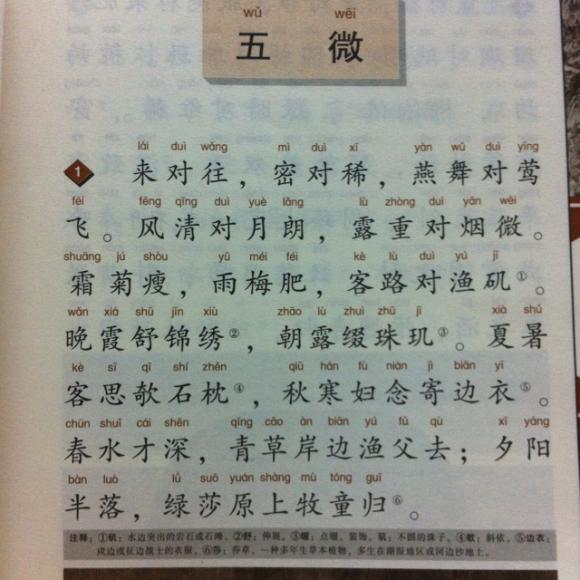 wǔ wēi
五 微
lái duì wǎng mì duì xī yàn wǔ duì yīng
1 来对往，密对稀，燕舞对莺
fēi fēng qīng duì yuè lǎng lù zhòng duì yān wēi
飞。风清对月朗，露重对烟微。
shuāng jú shòu yǔ méi féi kè lù duì yú jī
霜菊瘦，雨梅肥，客路对渔矶①。
wǎn xiá shū jǐn xiù zhāo lù zhuì zhū jī xià shǔ
晚霞舒锦绣②，朝露缀珠玑③。夏暑
kè sī qī shí zhěn qiū hán fù niàn jì biān yī
客思欹石枕④，秋寒妇念寄边衣⑤。
chūn shuǐ cái shēn qīng cǎo àn biān yú fǔ qù xī yáng
春水才深，青草岸边渔父去；夕阳
bàn luò lǜ suō yuán shàng mù tóng guī
半落，绿莎原上牧童归⑥。
注释：①矶：水边突出的岩石或石滩。②舒：伸展。③缀：点缀，装饰。玑：不圆的珠子。④欹：斜依。⑤边衣：
戍边或征边战士的衣服。⑥莎：莎草，一种多年生草本植物，多生在潮湿地区或河边沙地上。